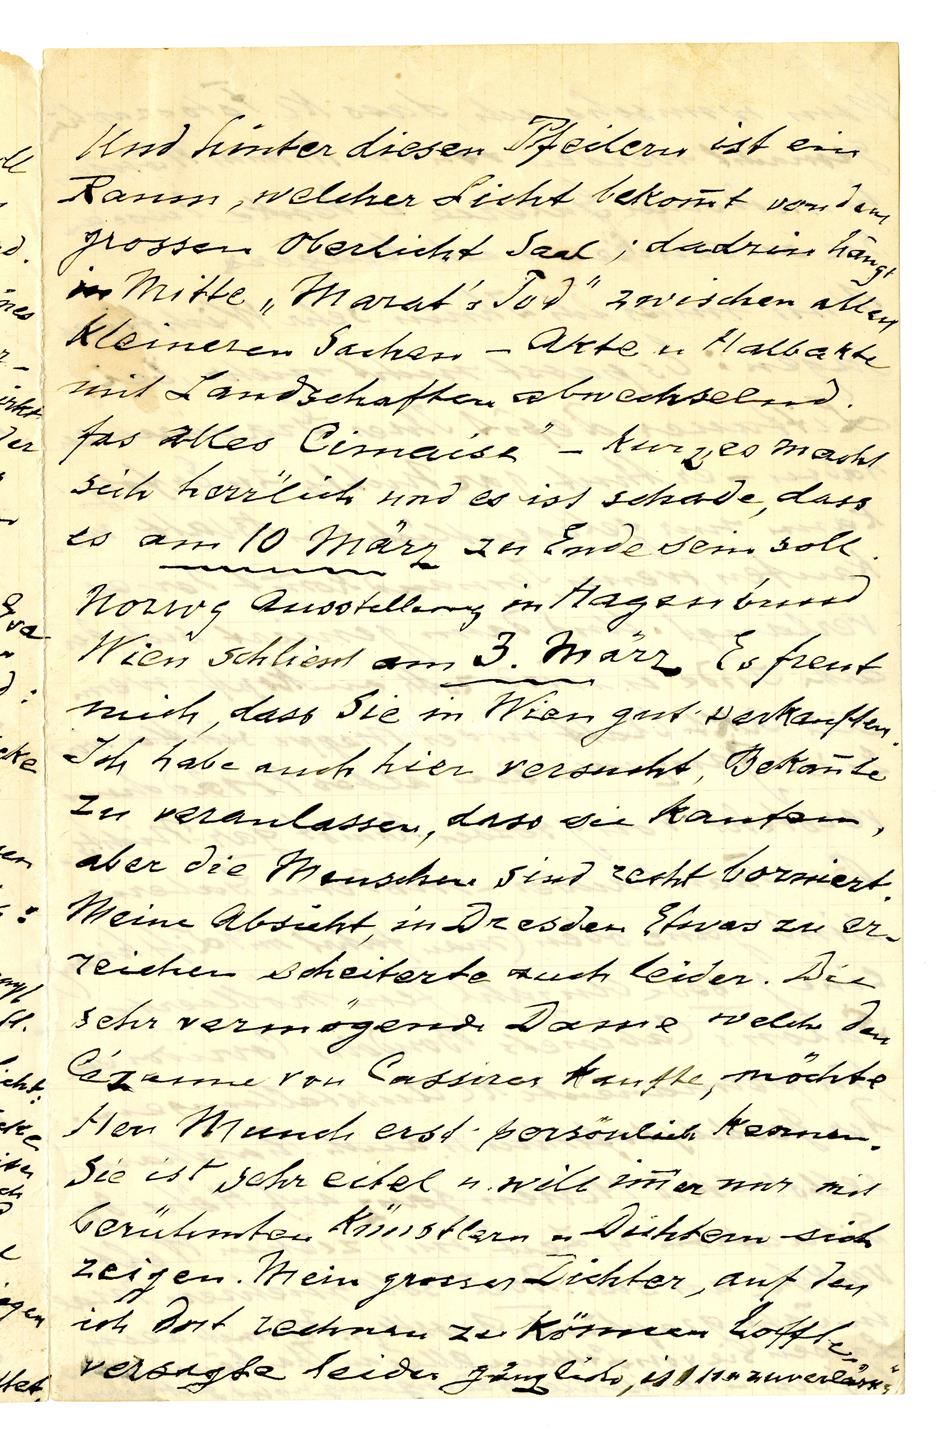 Und hinter diesen Pfeilern ist ein
Raum, welcher Licht bekom̅t von dem
grossen Oberlicht Saal; dadrin hängt
in Mitte „Marat's Tod" zwischen allen
kleineren Sachen – Akte u Halbakte
mit Landschaften abwechselnd.
fas Alles Cimaise" – kurz es macht
sich herrlich und es ist schade, dass
es am 10 März zu Ende sein soll.
Norwg Ausstellung in Hagenbund
Wien schliesst am 3. März Es freut
mich, dass Sie in Wien gut verkauften.
Ich habe auch hier versucht, Bekan̅te
zu veranlassen, dass sie kaufen,
aber die Menschen sind recht borniert.
Meine Absicht, in Dresden Etwas zu er-
reichen scheiterte auch leider. Die
sehr vermögende Dame welche den
Cézanne von Cassirer kaufte, möchte
Herr Munch erst persönlich kennen.
Sie ist sehr eitel u. will im̅er nur mit
berühmten Künstlern u Dichtern sich
zeigen. Mein grosser Dichter, auf den
ich dort rechnen zu können hoffte,
versagte leider gänzlich, ist unzuverläss"